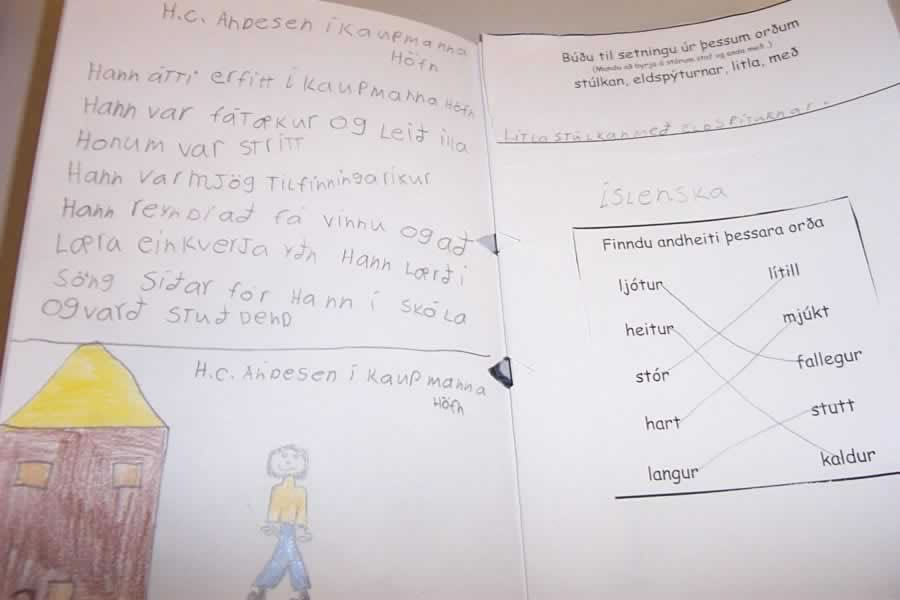 H.C. ANDESEN í KAUPMANNA
HÖFN
HANN ÁTTI ERFITT í KAUPMANNA HÖFN
HANN VAR FÁTÆKUR OG LEIÐ illa
HONUM VAR STRÍTT
HANN VAR MJÖG TILFINNINGARÍKUR
HANN REYNDI AÐ FÁ VINNU OG AÐ
LÆRA EINKVERJA HANN LÆRÐI
SÖNG SÍÐAR FÓR HANN í SKÓLA
OG VARÐ STUÐDEND
H.C. ANDESEN í KAUPMANNA
HÖFN
Búðu til setningu úr þessum orðum
(Mundu að byrja á stórum staf og enda með .)
stúlkan, eldspýturnar, litla, með
LITLA STÚLKAN MEÐ ELDSPÍTURNAR.
íSLENSKA
Finndu andheiti þessara orða
ljótur
lítill
heitur
mjúkt
stór
fallegur
hart
stutt
langur
kaldur